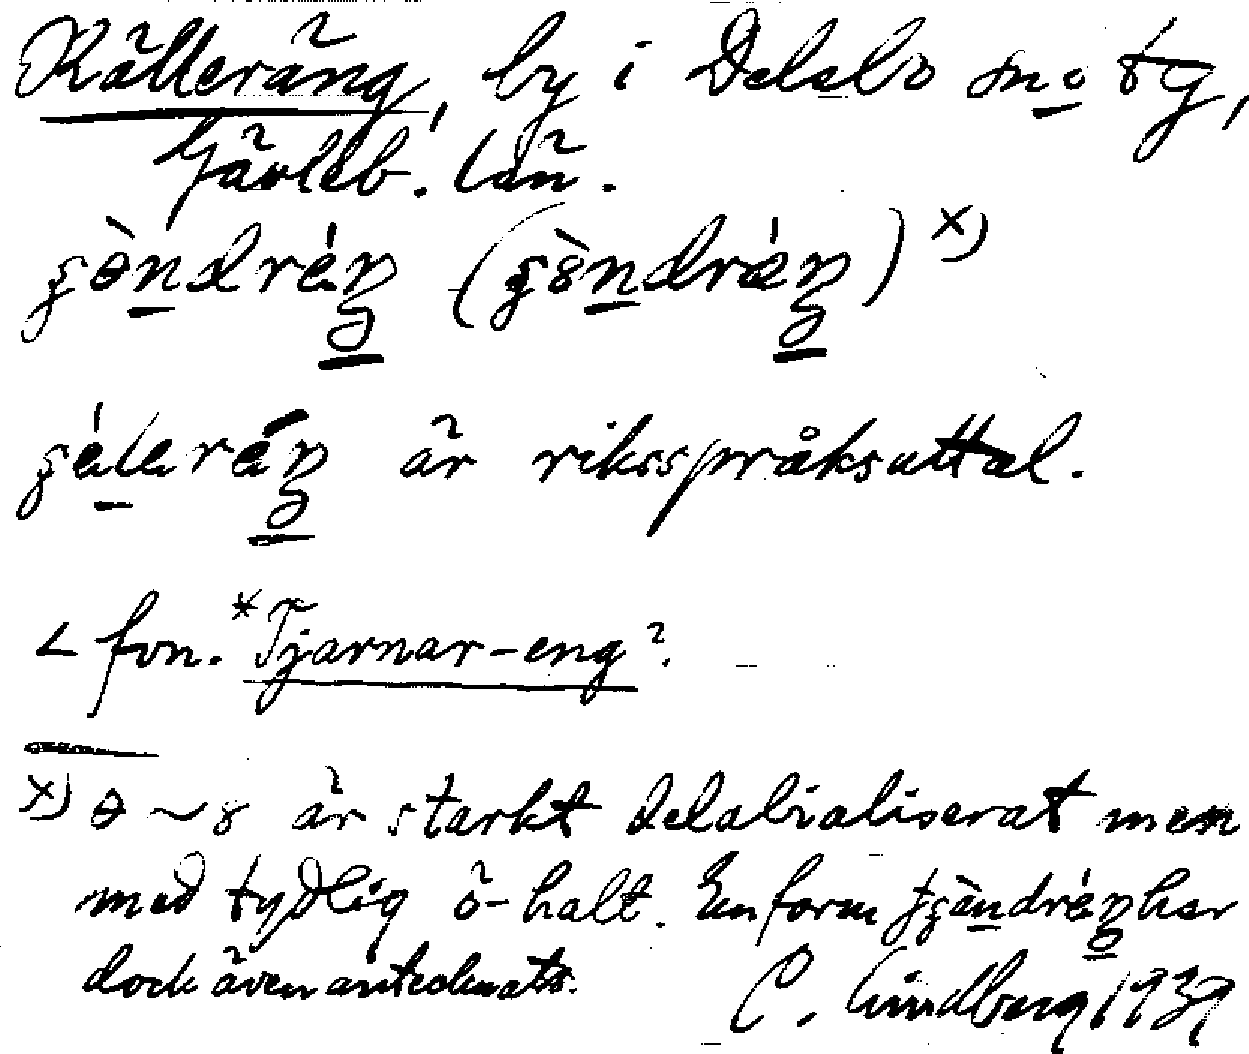 Källeräng, by i Delsbo sn o tg,
Gävleb. län.
är riksspråksuttal.
< fvn. *Tjarnar-eng?
x) ɵ ~ 8 är starkt delabialiserat men
med tydlig ö-halt. En form har
dock även antecknats.
C. Lindberg 1939